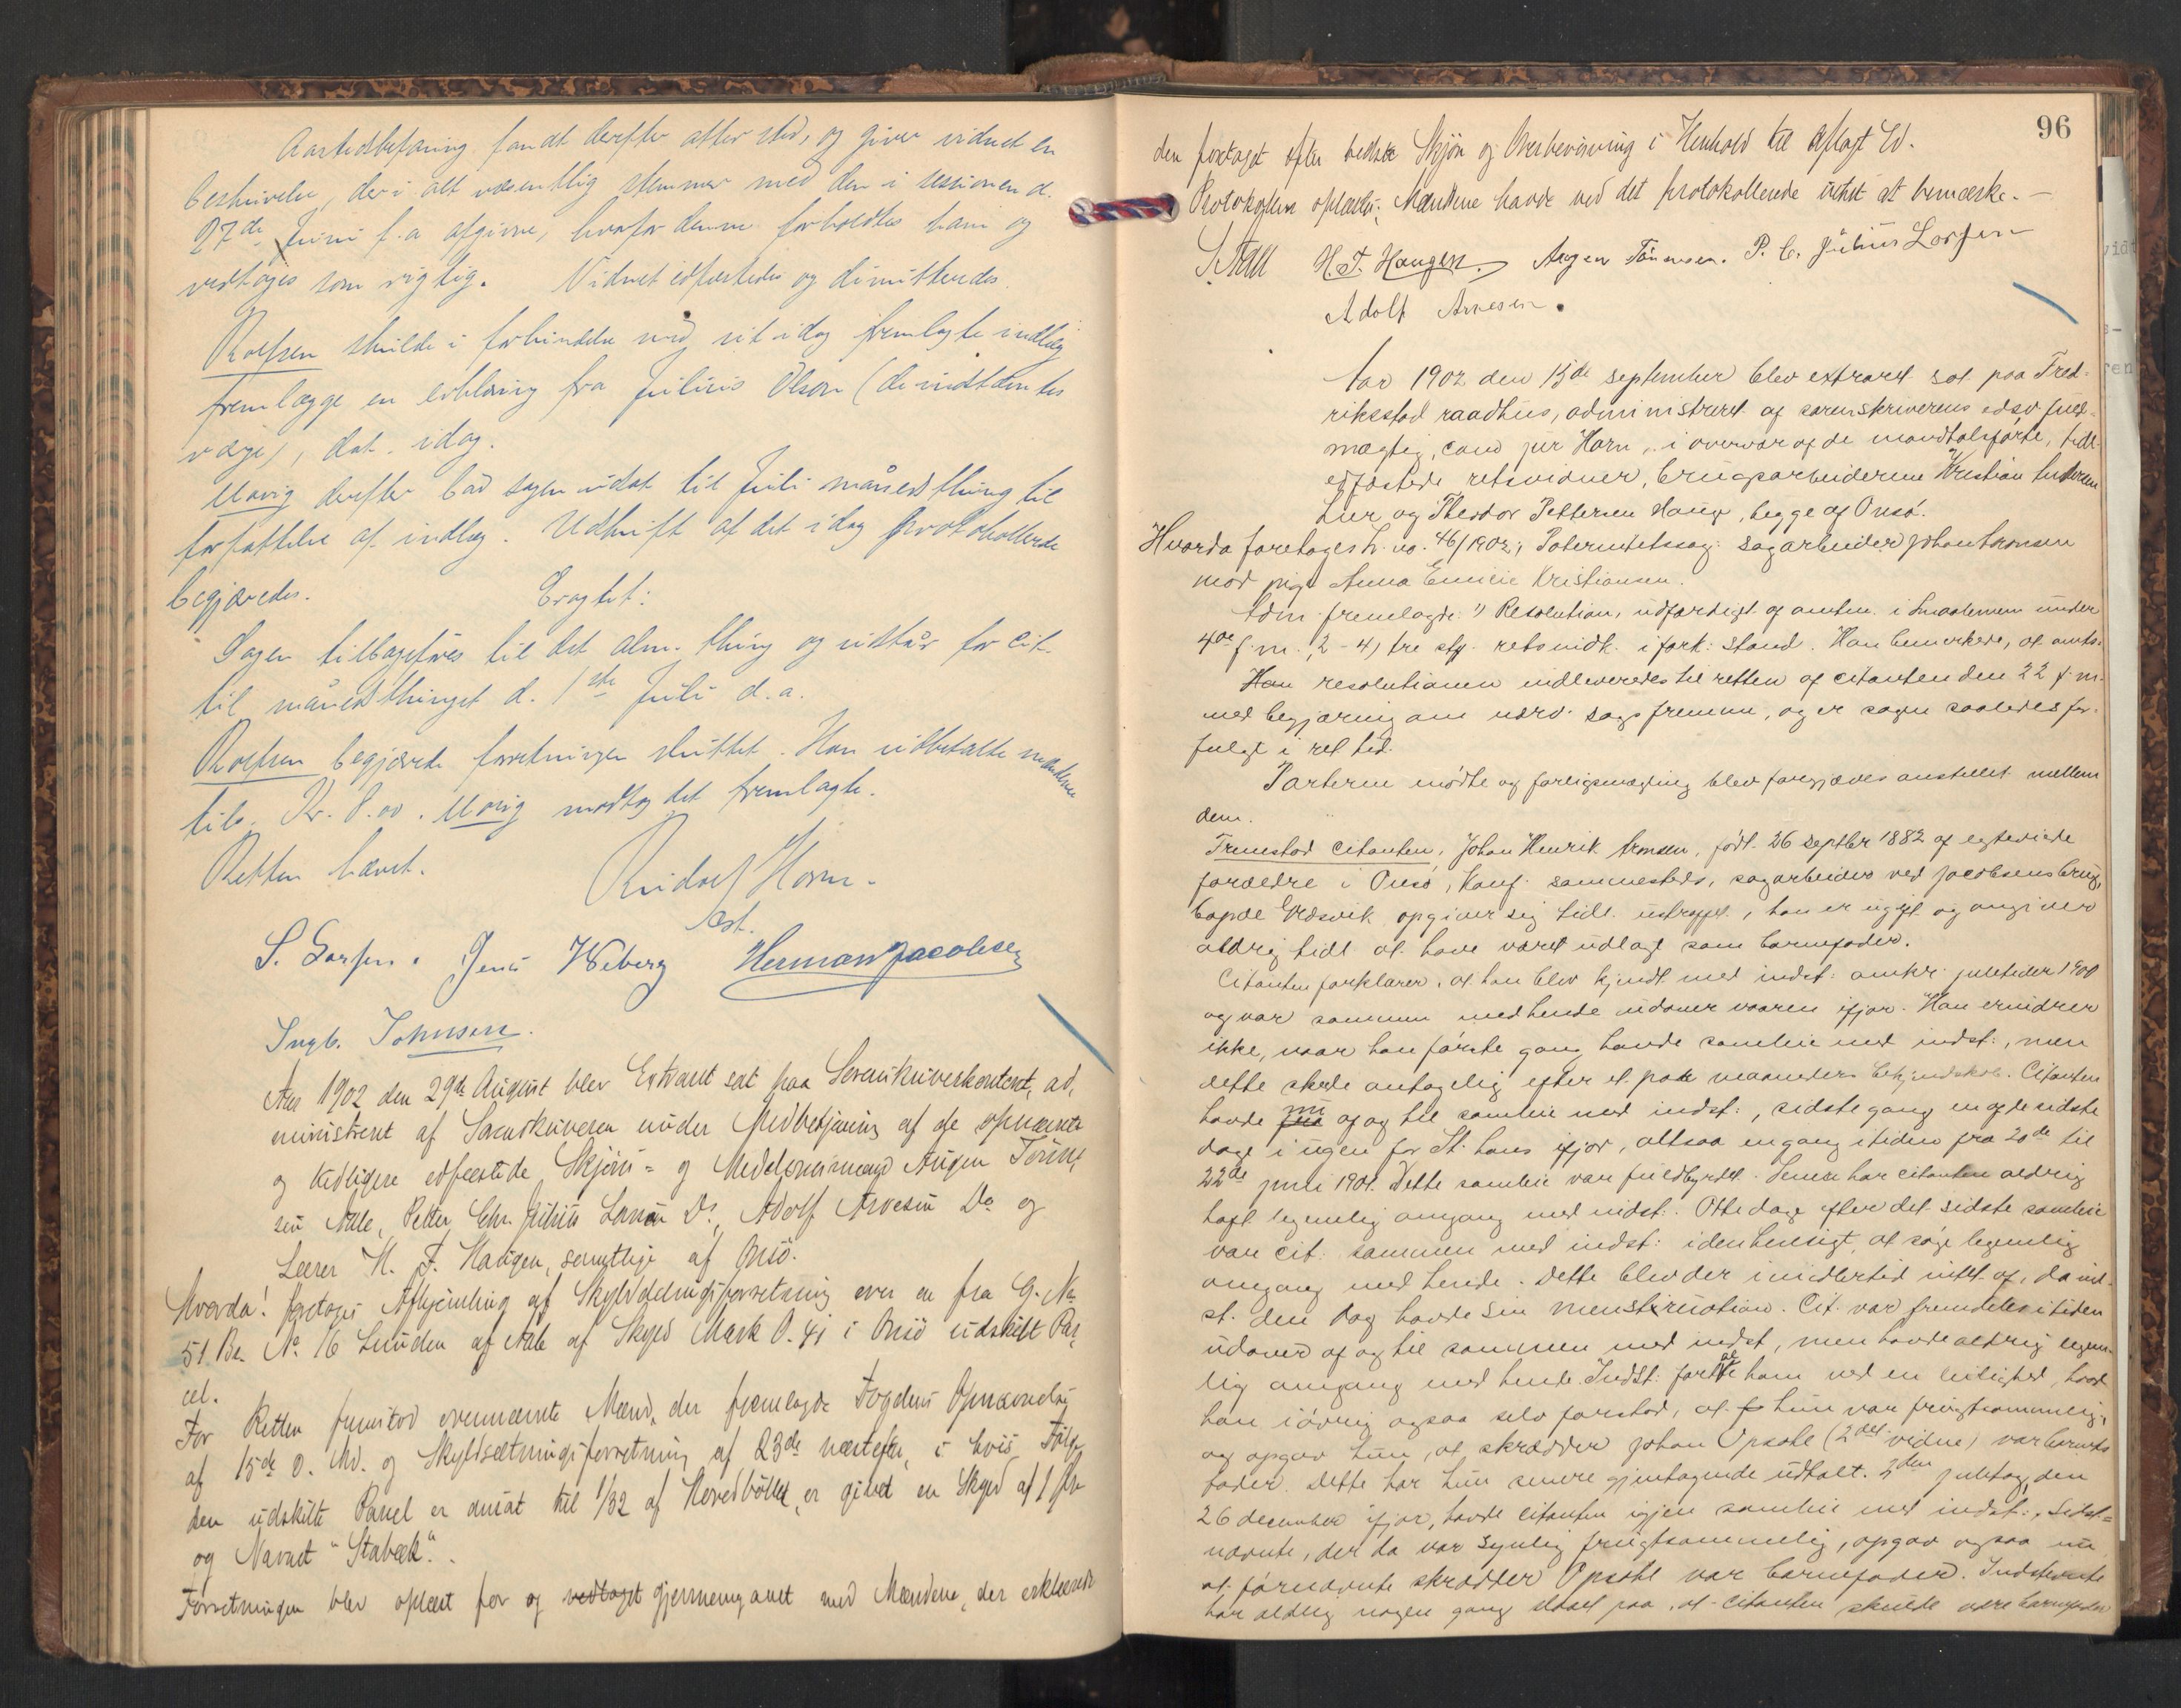 Aastedsbefaring fandt derefter atter sted, og giver vidnet en
beskrivelse, der i alt væsentlig stemmer med den i sessionen d.
27de Juni f.a afgivne, hvorfor denne forholdtes ham og
vedtoges som rigtig. Vidnet edfæstedes og dimitteredes.
Roefsen skulde i forbindelse med sit idag fremlagte indlæg
fremlægge en erklæring fra Julius Olsen (de indstævntes
værge), dat. idag.
Morig derefter bad sagen udsat til Juli månedsthing til
forfattelse af indlæg. Udskrift af det idag protokollerede
begjæredes. Eragtet:
Sagen tilbageføres til det alm. thing og udstår for cit.
til månedsthinget d. 1ste Juli d.a.
Roefsen begjærede forretningen sluttet. Han udbetalte mændene
tils. Kr. 8.00. Morig modtog det fremlagte.
Retten hævet.
Rudolf Horn.
cst.
S. Larsen. Jens Wiberg Herman Jacobsen
Ingb. Johnsen.
Aar 1902 den 29de August blev Extraret sat paa Sorenskriverkontoret, ad,
ministreret af Sorenskriveren under Medbetjening af de opnævnte
og tidligere edfæstede Skjøns- og Meddomsmænd Aagen Tønne
sen Aale, Petter Chr. Julius Larsen Do, Adolf Arvesen Do og
Lærer H. F. Haugen, samtlige af Onsø.
Hvorda! foretoges Afhjemling af Skylddelingsforretning over en fra G. No
51 Br. No 16 Lunden af Aale af Skyld Mark 0.41 i Onsø udskilt Par,
cel.
For Retten fremstod ovennævnte Mænd, der fremlagde Fogdens Opnævnelse
af 15de d. Md. og Skyldsætningsforretning af 23de næstefter, i hvis Følge
den udskilte Parcel er ansat til 1/32 af Hovedbøllet, er givet en Skyld af 1 Øre
og Navnet "Stabæk".
Forretningen blev oplæst for og vedtaget gjennemgaaet med Mændene, der erklærede
96
den foretaget efter bedste Skjøn og Overbevisning i Henhold til aflagt Ed.
Protokollen oplæstes; Mændene havde ved det protokollerede intet at bemærke. —
H. F. Haugen. Aagen Tönnesen. P. C. Julius Larsen
Adolf Arvesen.
Aar 1902 den 15de september blev extraret sat paa Fred-
riksstad raadhus, administreret af sorenskriverens edsv. fuld-
mægtig, cand jur Horn, i overvær af de mandtalsførte, tidl.
edfæstede retsvidner, brugsarbeiderne Kristian Andersen
Lier og Theodor Pettersen Haug, begge af Onsø.
Hvorda foretages L. no. 46/1902; Paternitetssag: Sagarbeider Johan Aronsen
mod pige Anna Emilie Kristiansen.
Adm. fremlagde 1) Resolution, udfærdiget af amtm. i Smaalenene under
4de f.m., 2-4) tre stk. retsmidt. i fork: stand. Han bemerkede, at amts-
Han resolutionen indleveredes til retten af citanten den 22 f.m.
med begjæring om nærv. sags fremme, og er sagen saaledes for-
fulgt i ret tid.
Parterne mødte og forligsmægling blev forgjæves anstillet mellem
dem.
Fremstod citanten, Johan Henrik Aronsen, født 26 septbr 1882 af egteviede
forældre i Onsø, konf. sammesteds, sagarbeider ved Jacobsens brug,
bopæl Græsvik opgiver sig tidl. ustraffet, han er ugift og angiver
aldrig tidl at have været udlagt som barnefader.
Citanten forklarer, at han blev kjendt med indst: omkr. juletider 1900
og var sammen med hende udover vaaren ifjor. Han erindrer
ikke, naar han første gang havde samleie med indst:, men
dette skede antagelig efter et par maaneders bekjendskab. Citanten
havde nu af og til samleie med indst:, sidste gang en af de sidste
dage i ugen før St. hans ifjor, altsaa engang i tiden fra 20de til
22de juni 1901. Dette samleie var fuldbyrdet. Senere har citanten aldrig
havt legemlig omgang med indst:. Otte dage efter det sidste samleie
var cit: sammen med indst: i den hensigt, at søge legemlig
omgang med hende. Dette blev der imidlertid intet af, da ind-
st. den dag havde sin menstruation. Cit. var fremdeles i tiden
udover af og til sammen med indst, men havde aldrig legem-
lig omgang med hende. Indst: fortalte ham ved en leilighed, hvad
han iøvrig ogsaa selv forstod, at hun var frugtsommelig,
og opgav hun, at skrædder Johan Opsahl (2det vidne) var barnets
fader. Dette har hun senere gjentagende udtalt. 2den juledag, den
26 december ifjor, havde citanten igjen samleie med indst:. Sidst-
nævnte, der da var synlig frugtsommelig, opgav ogsaa nu
at førnævnte skrædder Opsahl var barnefader. Indstevnte
har aldrig nogen gang ... paa, at citanten skulde være barnefader